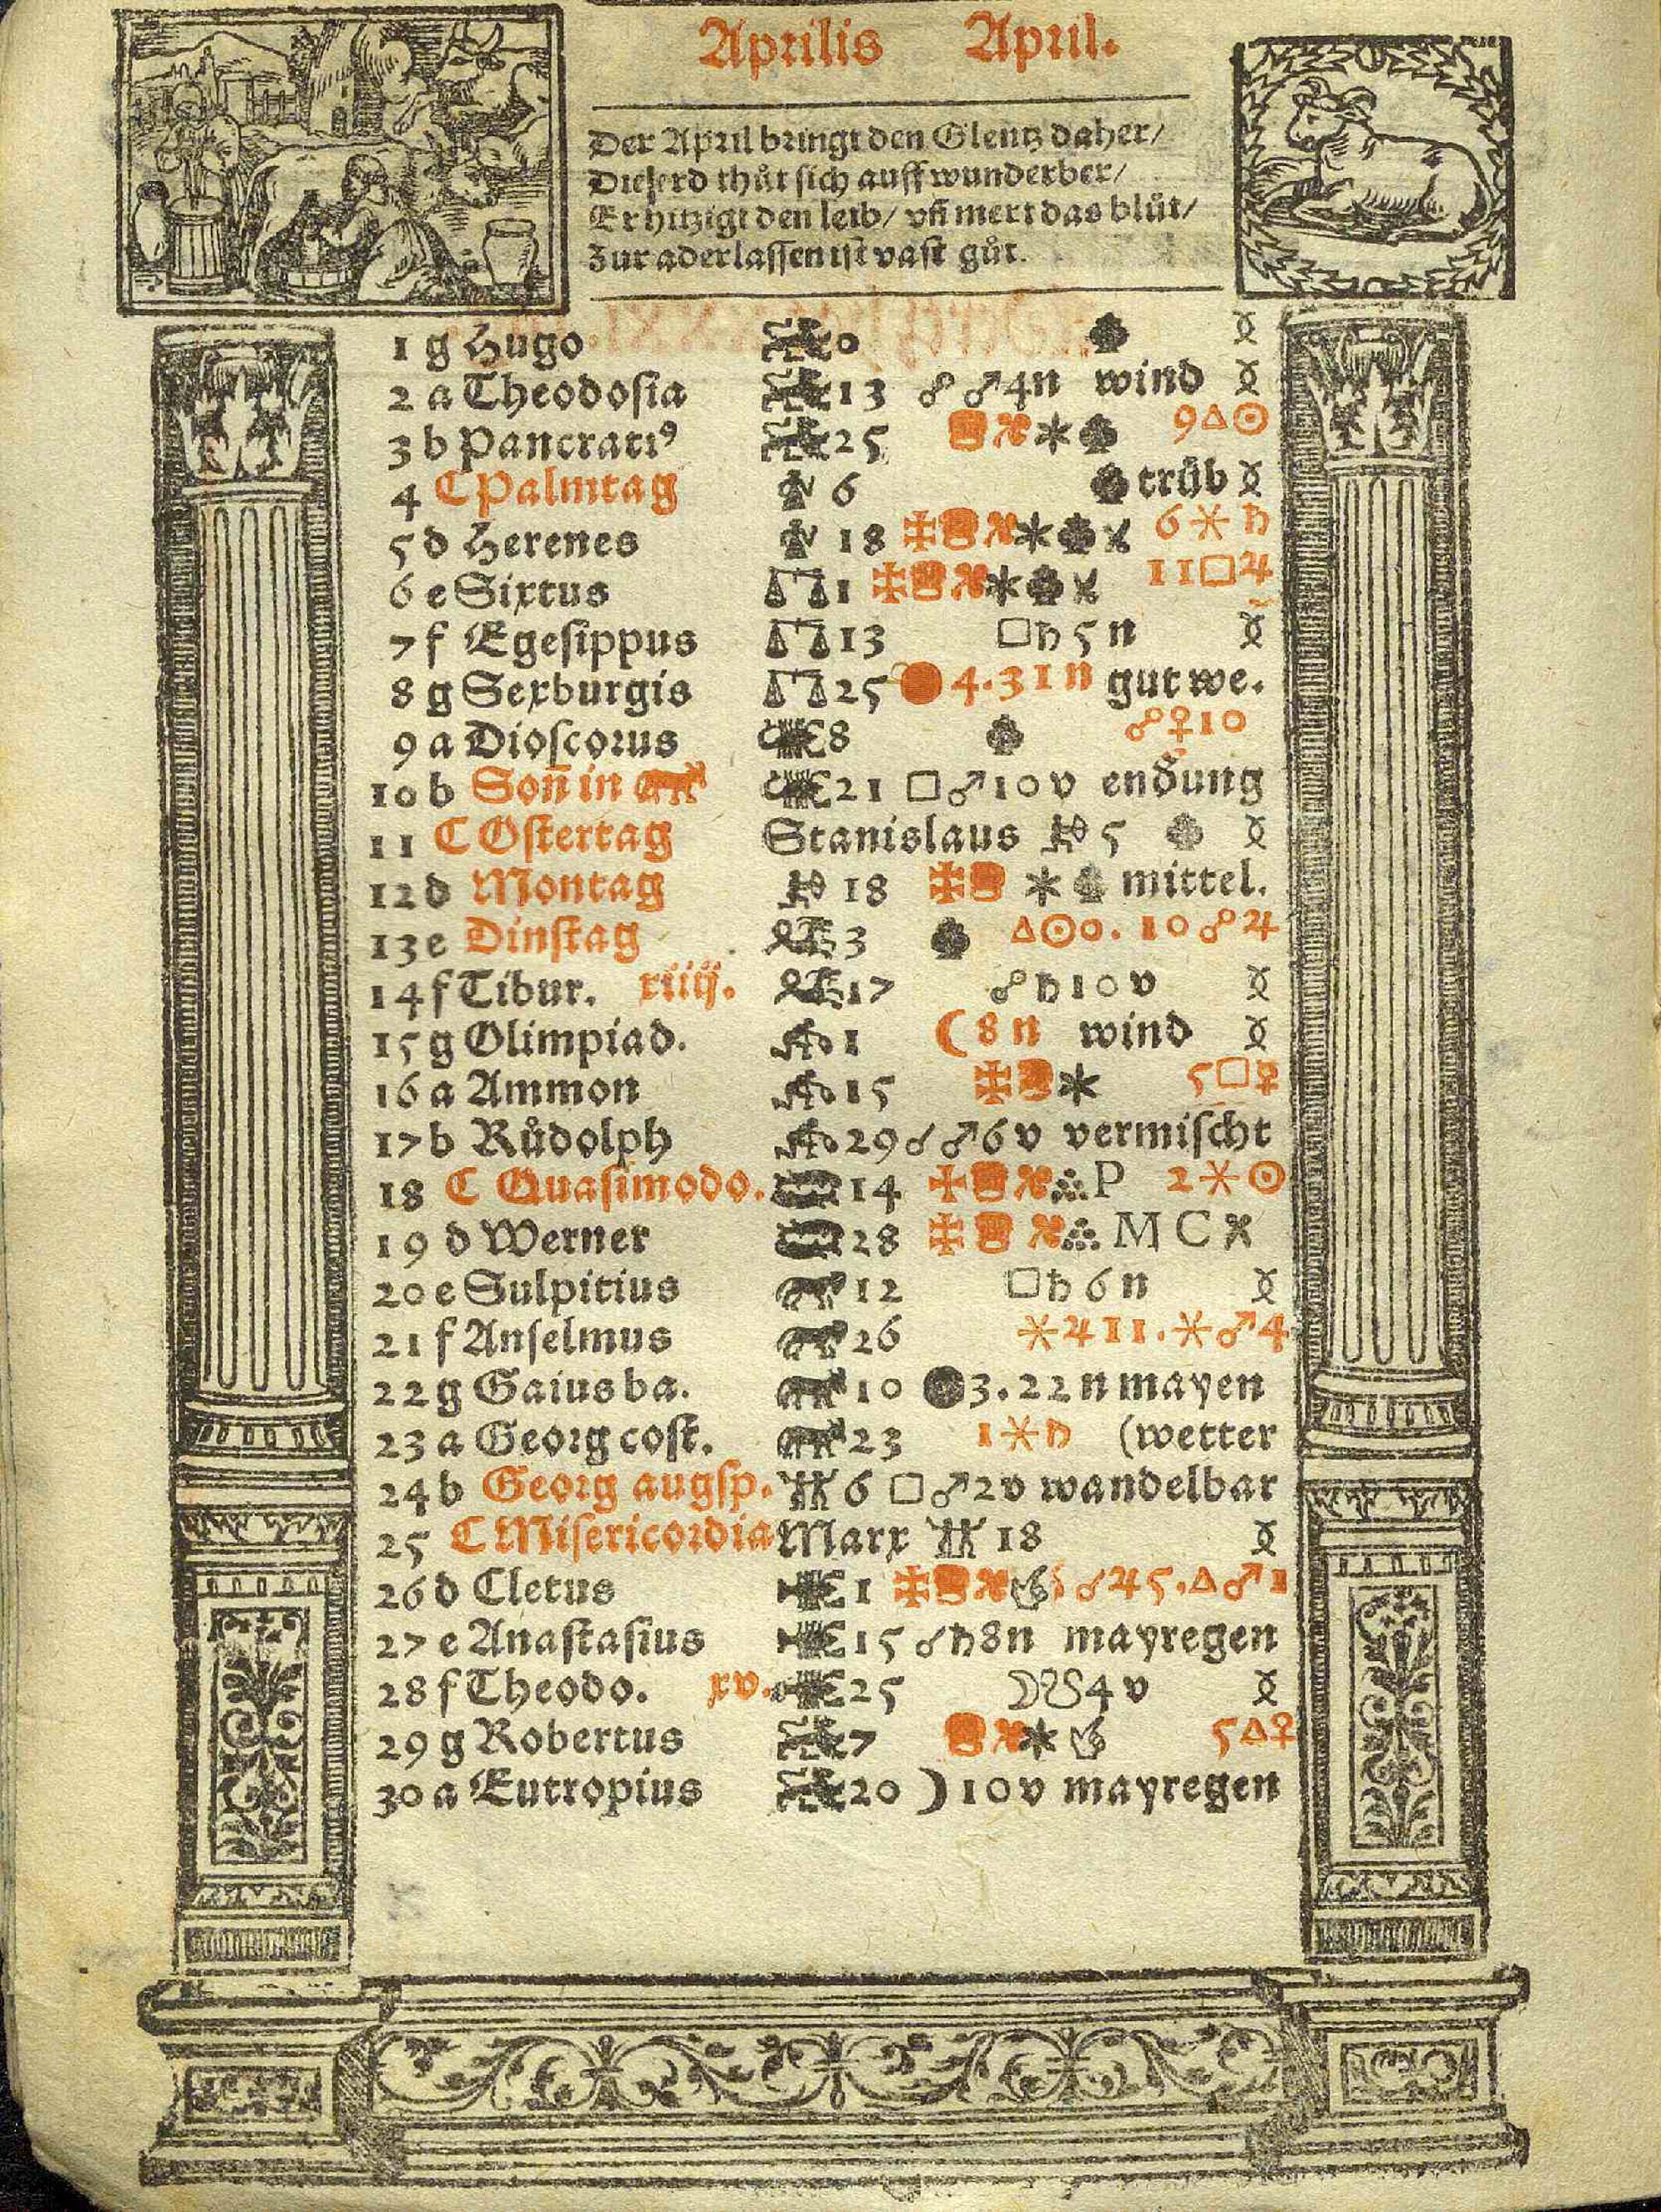 Aprilis April.
Der April bringt den Glentz daher/
Die erd thůt sich auff wunderber/
Er hitzigt den leib/ vñ mert das blůt/
Zur aderlassen ist vast gůt.
1 g Hugo 0
2 a Theodosia 13 ☍ ♂ 4 n wind
3 b Pancratiꝰ 25 9 △ ☉
4 C Palmtag 6 trüb
5 d Herenes 18 6 ⚹ ♄
6 e Sixtus 1 11 □ ♃
7 f Egesippus 13 □ ♄ 5 n
8 g Sexburgis 25 4.31 n gut we.
9 a Dioscorus 8 ☍ ♀ 10
10 b Soñ in ♉ 21 □ ♂ 10 v endung
11 C Ostertag Stanislaus 5
12 d Montag 18 mittel.
13 e Dinstag 3 △ ☉ 0. 10 ☍ ♃
14 f Tibur. xiiij. 17 ☍ ♄ 10 v
15 g Olimpiad. 1 ( 8 n wind
16 a Ammon 15 5 □ ♀
17 b Růdolph 29 ☌ ♂ 6 v vermischt
18 C Quasimodo. 14 P 2 ⚹ ☉
19 d Werner 28 M C
20 e Sulpitius 12 □ ♄ 6 n
21 f Anselmus 26 ⚹ ♃ 11. ⚹ ♂ 4
22 g Gaius ba. 10 3.22 n mayen
23 a Georg cost. 23 1 ⚹ ♄ (wetter
24 b Georg augsp. 6 □ ♂ 2 v wandelbar
25 C Misericordia Marx 18
26 d Cletus 1 ☌ ♃ 5. △ ♂ 1
27 e Anastasius 15 ☌ ♄ 8 n mayregen
28 f Theodo. xv. 25 ☽ ☋ 4 v
29 g Robertus 7 5 △ ♀
30 a Eutropius 20 ) 10 v mayregen